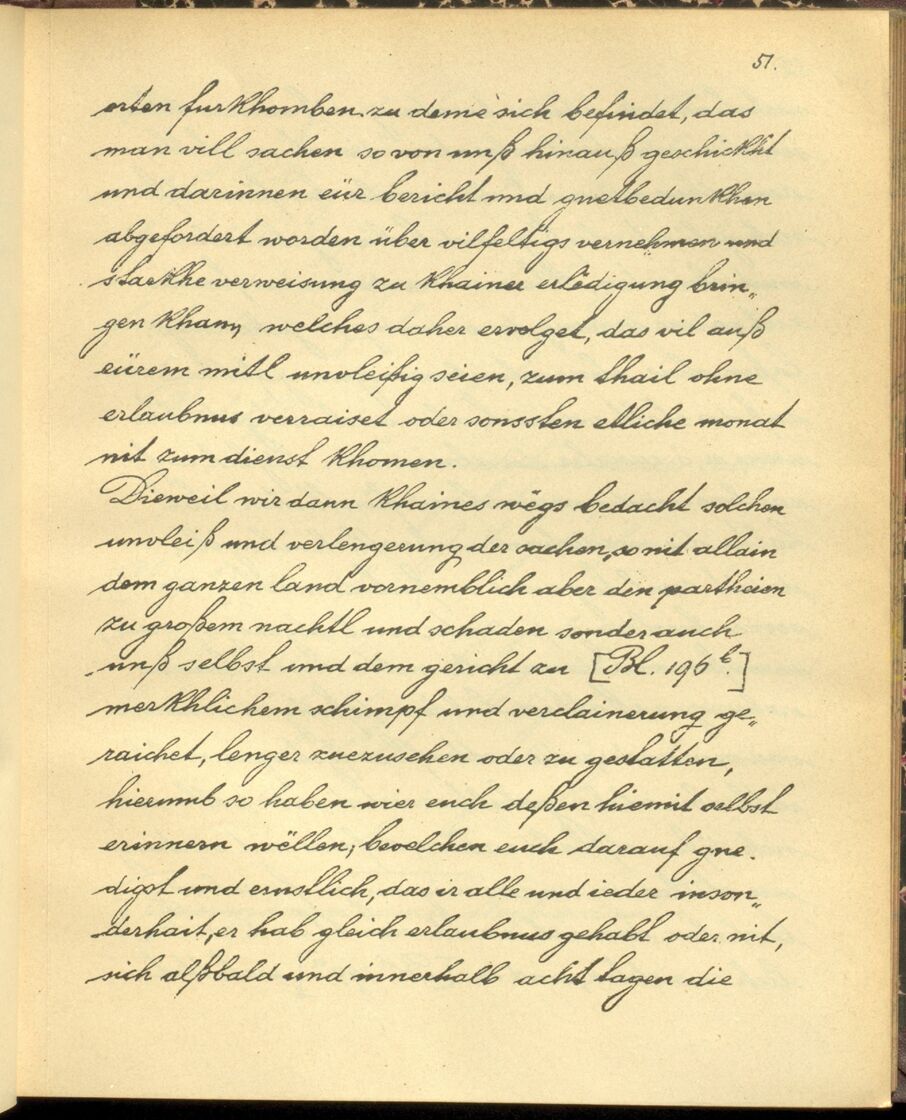 51.
orten furkhomben zu deme sich befindet, das
man vill sachen so von unß hinauß geschickht
und darinnen eür bericht und guetbedunkhen
abgefordert worden über vilfeltigs vernehmen und
starkhe verweisung zu khainer erlëdigung brin„
gen khan, welches daher ervolget, das vil auß
eürem mitl unvleißig seien, zum thail ohne
erlaubnus verraiset oder sonssten etliche monat
nit zum dienst khomen.
Dieweil wir dann khaines wëgs bedacht solchen
unvleiß und verlengerung der sachen, so nit allain
dem ganzen land vornemblich aber den partheien
zu großem nachtl und schaden sonder auch
unß selbst und dem gericht zu [Bl. 196b.]
merkhlichem schimpf und verclainerung ge„
raichet, lenger zuezusehen oder zu gestatten,
hierumb so haben wier euch deßen hiemit selbst
erinnern wëllen; bevelchen euch darauf gne.
digst und ernstlich, das ir alle und ieder inson„
derhait, er hab gleich erlaubnus gehabt oder nit,
sich alßbald und innerhalb acht tagen die